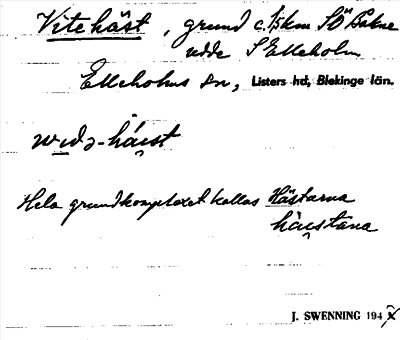 Vitehäst, grund c. 1,5 km SÖ Bökne
udde S Elleholm
Elleholms sn, Listers hd, Blekinge län.
widə-häist
Hela grundkomplexet kallas Hästarna
häistana
J. SWENNING 194